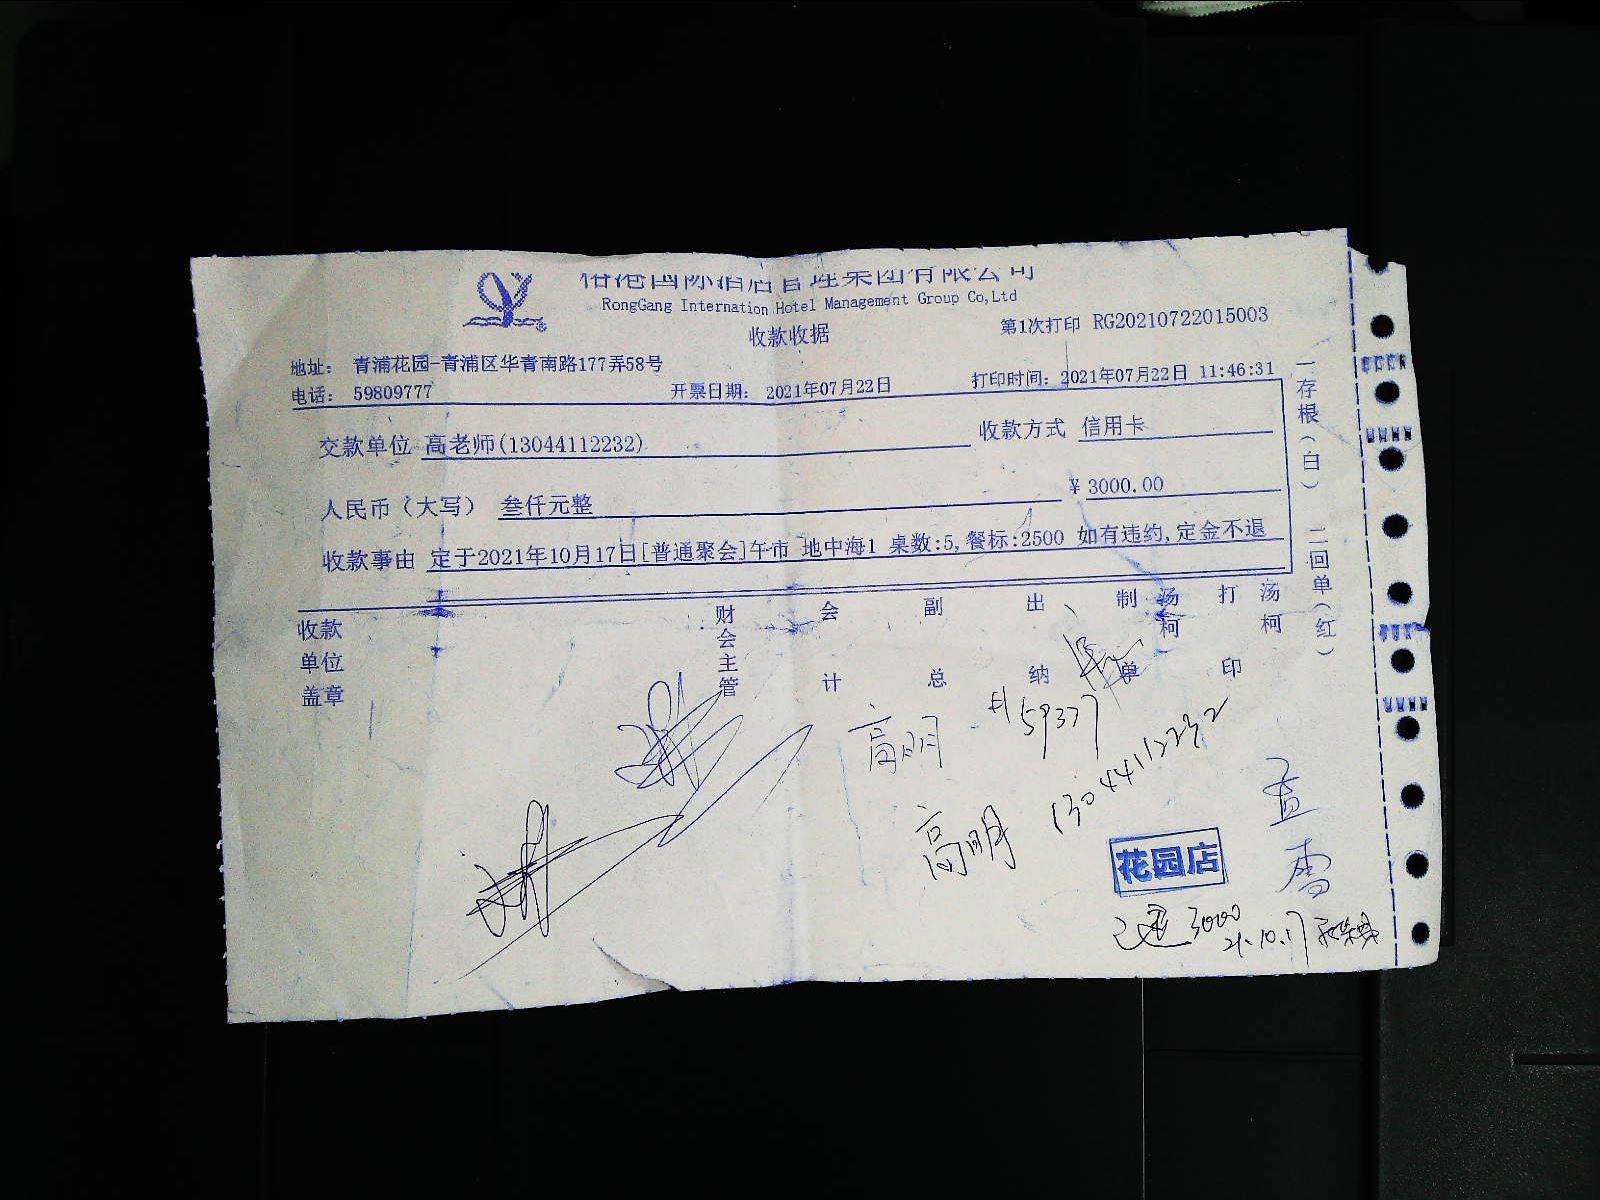 国际酒店管理集团有限公司
RongGang Internation Hotel Management Group Co,Ltd
收款收据
第1次打印 RG20210722015003
地址： 青浦花园-青浦区华青南路177弄58号
电话： 59809777 开票日期： 2021年07月22日 打印时间：2021年07月22日 11:46:31
交款单位 高老师(13044112232) 收款方式 信用卡
人民币（大写） 叁仟元整 ￥3000.00
收款事由 定于2021年10月17日[普通聚会]午市 地中海1 桌数:5,餐标:2500 如有违约,定金不退
一存根（白） 二回单（红）
收款单位盖章 财会主管 会计 副总 出纳 制单 汤柯 打印 汤柯
高明 59377
高明 13044112232
孟雪
花园店
已退3000
21.10.17